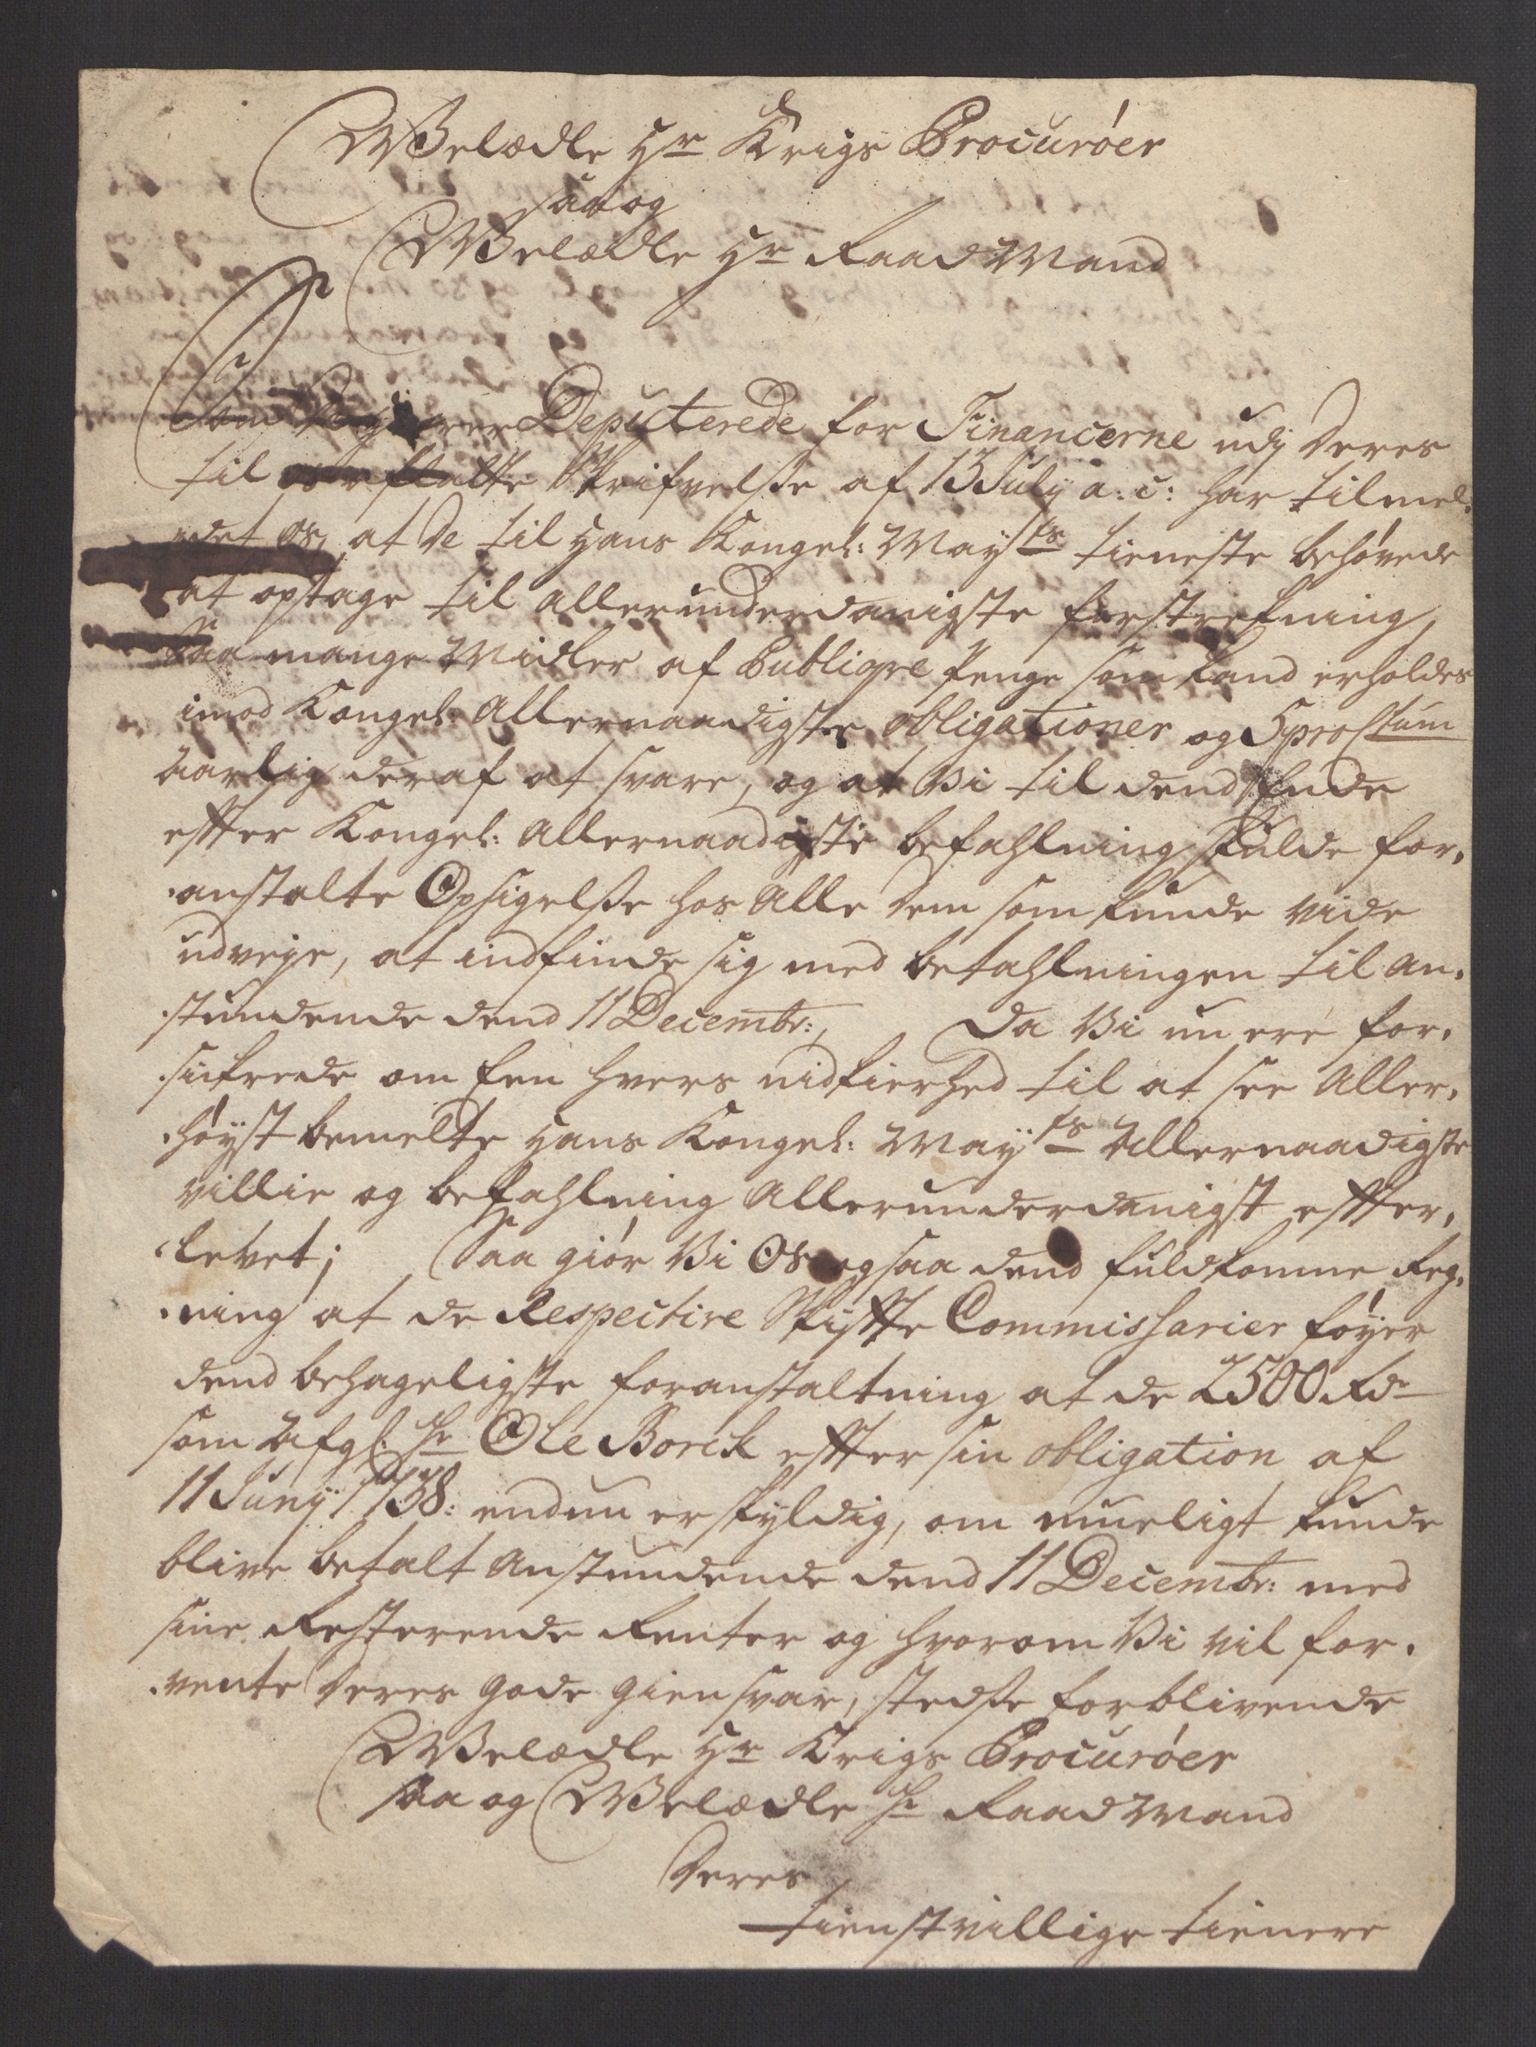 Velædle Hr Krigs Procurøer
saa og
Velædle Hr Raad Mand
Deputerede for Financerne udj Deres
til Skrifvelsse af 13 July a: c: har tilmel-
det os, at De til Hans Kongel: Mayts tieneste behøvede
at optage til allerunderdanigste forstrekning,
Saa mange Midler af Publiqve Penge som kand erholdes
imod Kongel: Allernaadigste Obligationer og 5 pro Ctum
Aarlig deraf at svare, og at Vi til dend Ende
efter Kongel: Allernaadigste befahlning skulde for-
-anstalte Opsigelsse hos Alle dem som kunde vide
udveje, at indfinde sig med betahlningen til an-
-stundende dend 11 Decembr:, Da Vi nu ere for-
-sikrede om Een hvers nidkierhed til at see Aller-
-høyst bemelte Hans Kongel: Mayts Allernaadigste
Villie og befahlning Allerunderdanigst effter-
-levet; Saa giør Vi Os og saa dend fuldkomne Reg-
-ning at de Respective Skiffte Commissarier føyer
dend behageligste foranstaltning at de 2500 Rdr
som Afgl: Hr Ole Borck effter sin obligation af
11 Juny 1738: endnu er skyldig, om mueligt kunde
blive betalt Anstundende dend 11 Decembr: med
sine Resterende Renter og hvorom Vi vil for-
-vente Deres gode giensvar, stedsse forblivende
Velædle Hr Krigs Procurøer
saa og Velædle Hr Raad Mand
Deres
tienstvillige tienere